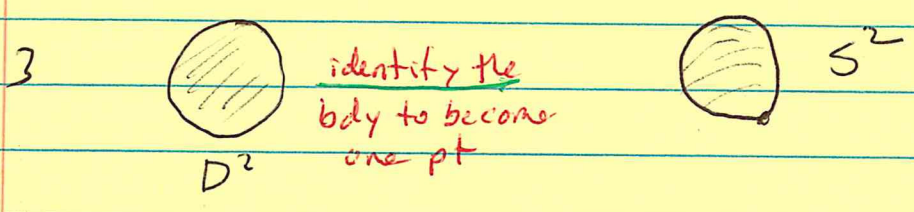 3
identify the
bdy to become
one pt
D²
S²